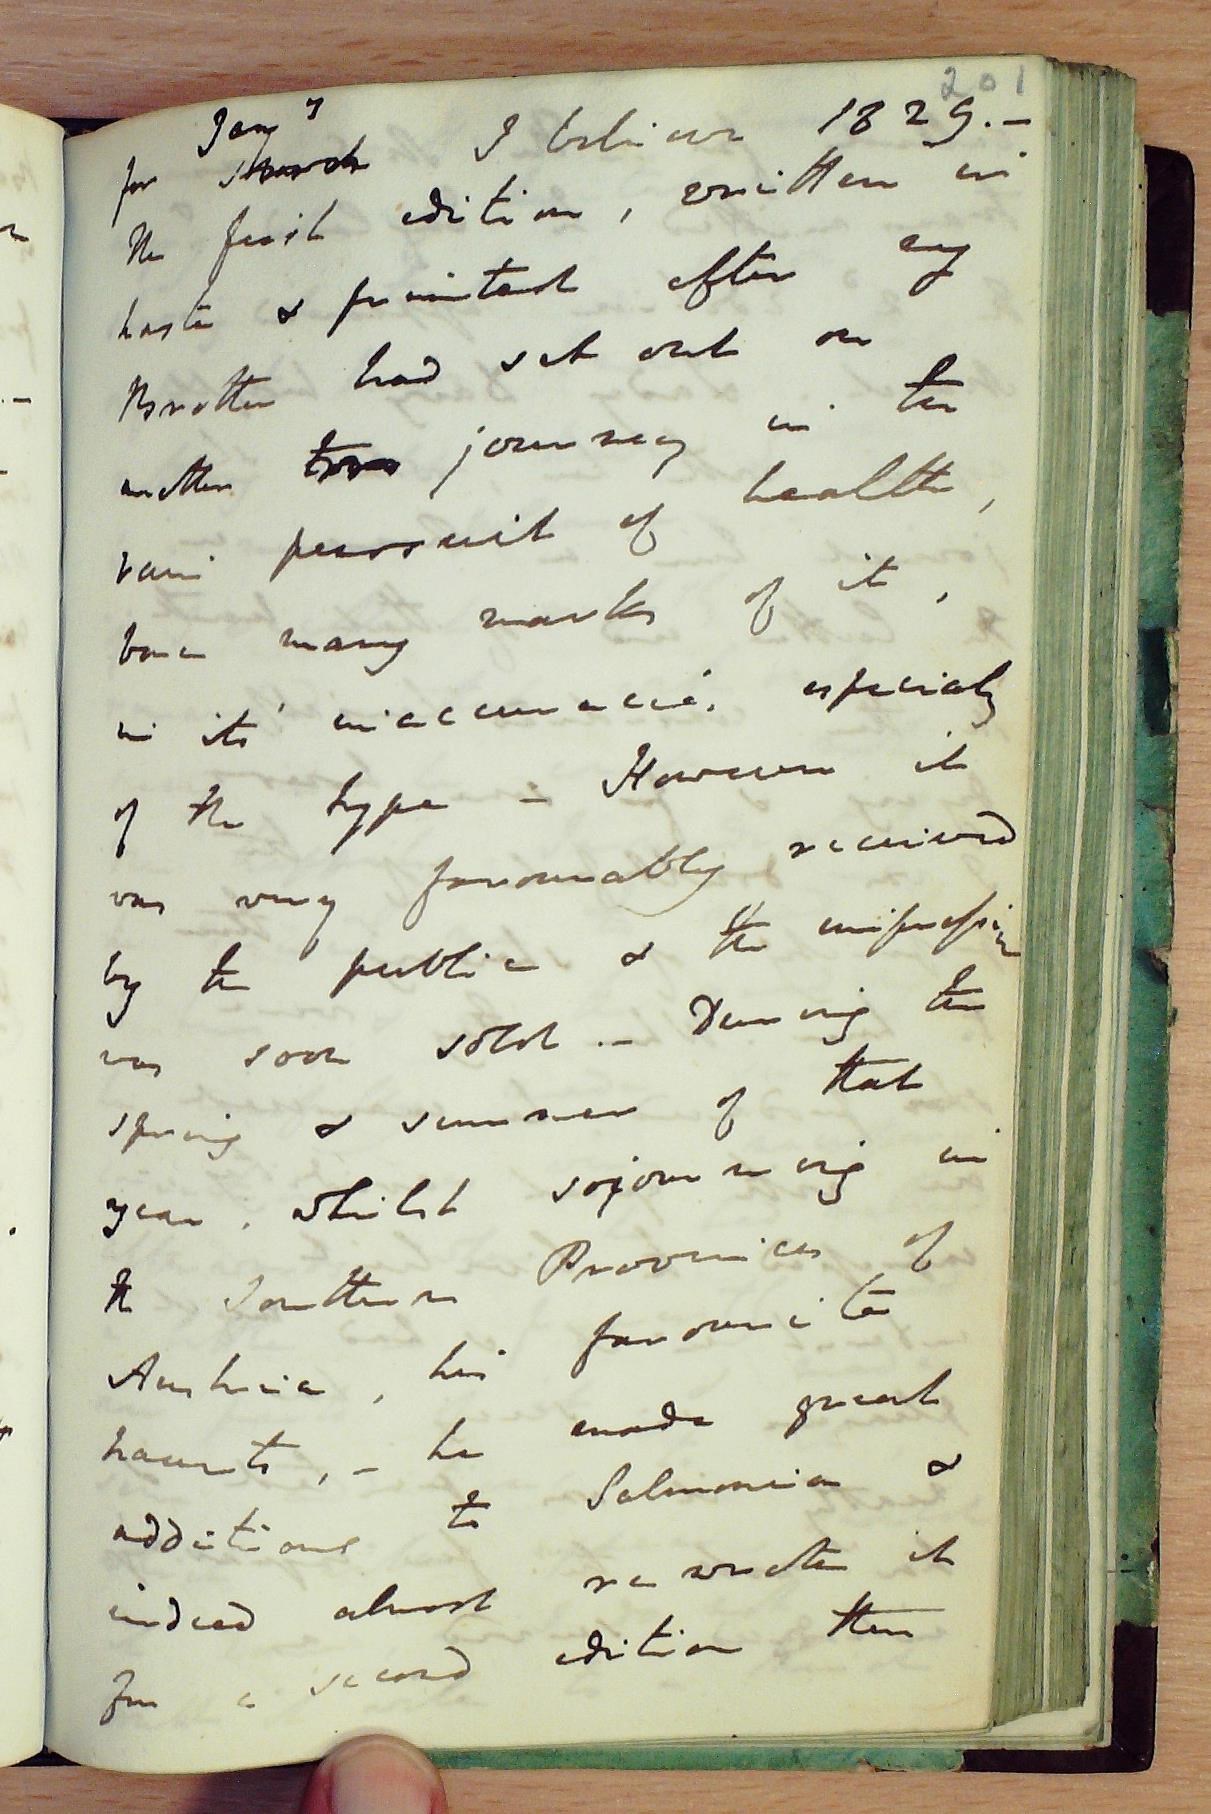 201
Jany
for March I believe 1829.–
the first edition, written in
haste & printed after my
Brother had set out on
another tour journey in the
vain pursuit of health,
bore many marks of it,
in its' inaccuracies, especialy
of the type – However it
was very favourably received
by the public & the impression
was soon sold – During the
spring & summer of that
year, whilst sojourning in
the Southern Provinces of
Austria, his favourite
haunts, – he made great
additions to Salmonia &
indeed almost re wrote it
for a second edition then